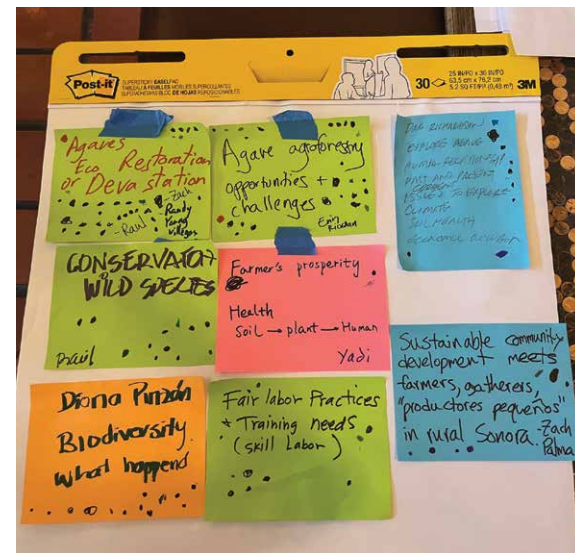 Post-it
SUPERSTICKY EASEL PAD
30
25 IN/PO x 30 IN/PO
63,5 cm x 76,2 cm
3M
Agaves
Eco Restoration
or Devastation
-Raul
-Zach
Randy
Young
Villegas
Agave agroforestry
opportunities +
challenges
Erin
Riordan
EXPLORE AGAVE
PAST AND PRESENT
ISSUES TO EXPLORE
CLIMATE
SOIL HEALTH
CONSERVATION
WILD SPECIES
Raúl
Farmer's prosperity
Health
Soil → plant → Human
Yadi
Sustainable community
development meets
farmers, gatherers,
"productores pequeños"
in rural Sonora.
-Zach
Palma
Diana Pinzón
Biodiversity
what happend
Fair labor Practices
+ Training needs
(skill Labor)